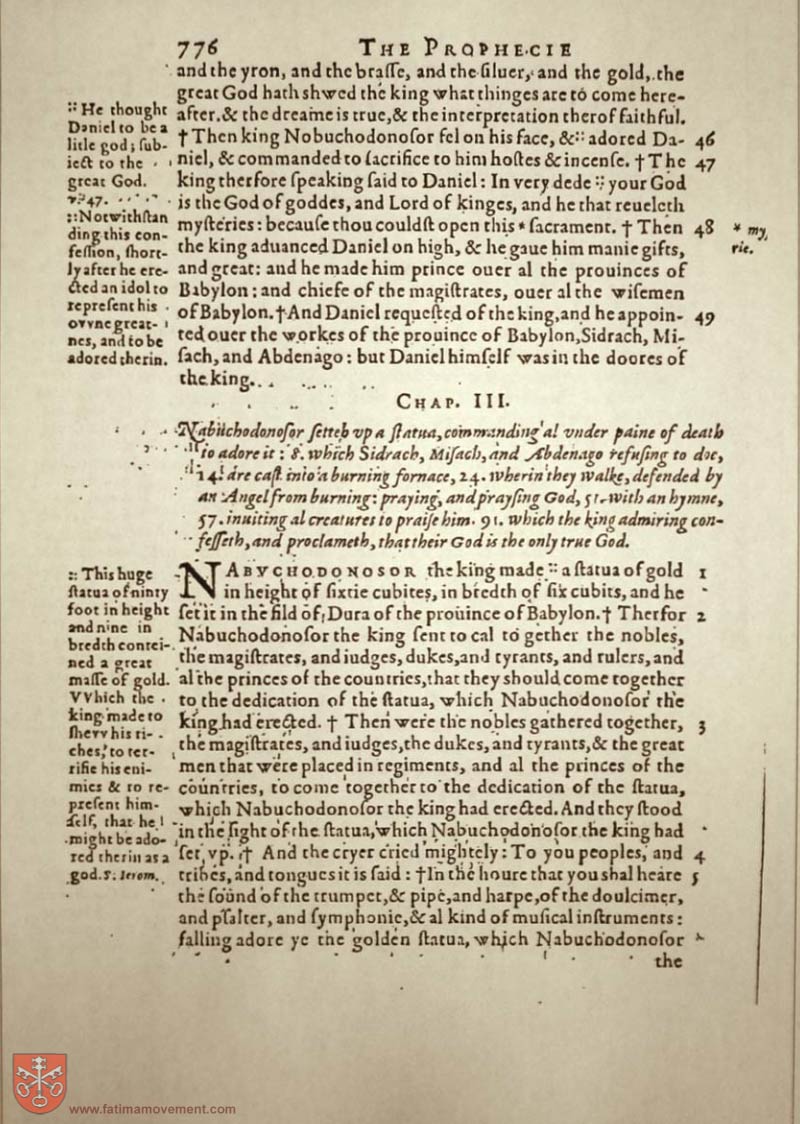 776 THE PROPHECIE
and the yron, and the braſſe, and the ſiluer, and the gold, the
great God hath shwed the king what thinges are to come here-
after. & the dreame is true, & the interpretation therof faithful.
† Then king Nobuchodonoſor fel on his face, & :: adored Da- 46
niel, & commanded to ſacrifice to him hoſtes & incenſe. † The 47
king therfore ſpeaking ſaid to Daniel: In very dede :: your God
is the God of goddes, and Lord of kinges, and he that reueleth
myſteries: becauſe thou couldſt open this * ſacrament. † Then 48
the king aduanced Daniel on high, & he gaue him manie gifts,
and great: and he made him prince ouer al the prouinces of
Babylon: and chiefe of the magiſtrates, ouer al the wiſemen
of Babylon. † And Daniel requeſted of the king, and he appoin- 49
ted ouer the workes of the prouince of Babylon, Sidrach, Mi-
ſach, and Abdenago: but Daniel himſelf was in the doores of
the king.
:: He thought
Daniel to be a
litle god; ſub-
iect to the
great God.
v. 47.
:: Notwithſtan
ding this con-
feſſion, ſhort-
ly after he ere-
cted an idol to
repreſent his
ovvne great-
nes, and to be
adored therin.
* my,
rie.
CHAP. III.
Nabuchodonoſor ſetteth vp a ſtatua, commanding al vnder paine of death
to adore it: 8. which Sidrach, Miſach, and Abdenago refuſing to doe,
14. are caſt into a burning fornace, 24. wherin they walke, defended by
an Angel from burning: praying, and prayſing God, 51. with an hymne,
57. inuiting al creatures to praiſe him. 91. which the king admiring con-
feſſeth, and proclameth, that their God is the only true God.
NABVCHODONOSOR the king made :: a ſtatua of gold 1
in height of ſixtie cubites, in bredth of ſix cubits, and he
ſet it in the fild of Dura of the prouince of Babylon. † Therfor 2
Nabuchodonoſor the king ſent to cal to gether the nobles,
the magiſtrates, and iudges, dukes, and tyrants, and rulers, and
al the princes of the countries, that they should come together
to the dedication of the ſtatua, which Nabuchodonoſor the
king had erected. † Then were the nobles gathered together, 3
the magiſtrates, and iudges, the dukes, and tyrants, & the great
men that were placed in regiments, and al the princes of the
countries, to come together to the dedication of the ſtatua,
which Nabuchodonoſor the king had erected. And they ſtood
in the ſight of the ſtatua, which Nabuchodonoſor the king had
ſet vp. † And the cryer cried mightely: To you peoples, and 4
tribes, and tongues it is ſaid: † In the houre that you shal heare 5
the ſound of the trumpet, & pipe, and harpe, of the doulcimer,
and pſalter, and ſymphonie, & al kind of muſical inſtruments:
falling adore ye the golden ſtatua, which Nabuchodonoſor
the
:: This huge
ſtatua of ninty
foot in height
and nine in
bredth contei-
ned a great
maſſe of gold.
VVhich the
king made to
ſhevv his ri-
ches, to ter-
rifie his eni-
mies & to re-
preſent him-
ſelf, that he
might be ado-
red therin as a
god. S. Ierom.
www.fatimamovement.com